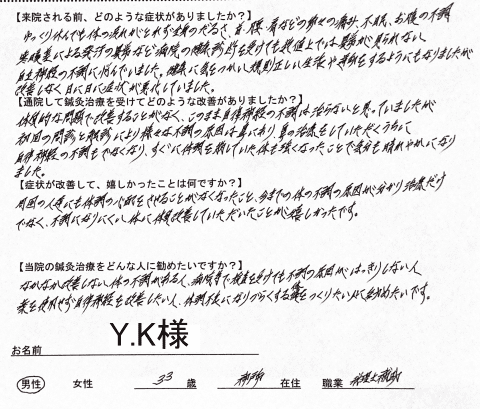 【来院される前、どのような症状がありましたか？】
ゆっくり休んでも体の疲れがとれず全身のだるさ、首・腰・肩などの節々の痛み、不眠、お腹の不調
気候差による発汗の異常など病院の健康診断を受けても数値上では異常が見られない
自律神経の不調に悩んでいました。健康に気をつかい規則正しい生活や運動をするようにもなりましたが
改善しなく日に日に症状が重くしていました。
【通院して鍼灸治療を受けてどのような改善がありましたか？】
体質的な問題で改善することがなく、このまま自律神経の不調は治らないと思っていましたが
初回の問診と触診により様々な不調の原因は胃にあり胃の治療をしていただくうちに
自律神経の不調もでなくなり、すぐに体調を崩していた体も強くなったことで気分も晴れやかになり
ました。
【症状が改善して、嬉しかったことは何ですか？】
周囲の人達にも体調の心配をさせることがなくなったこと、今までの体の不調の原因が分かり治療だけ
でなく、不調になりにくい体に体質改善していただいたことが嬉しかったです。
【当院の鍼灸治療をどんな人に勧めたいですか？】
なかなか改善しない体の不調がある人、病院等で検査を受けても不調の原因がはっきりしない人
薬を使用せず自律神経を改善したい人、体調不良になりづらくする体をつくりたい人に勧めたいです。
お名前 Y.K様
男性 女性 33 歳 在住 職業 税理士補助